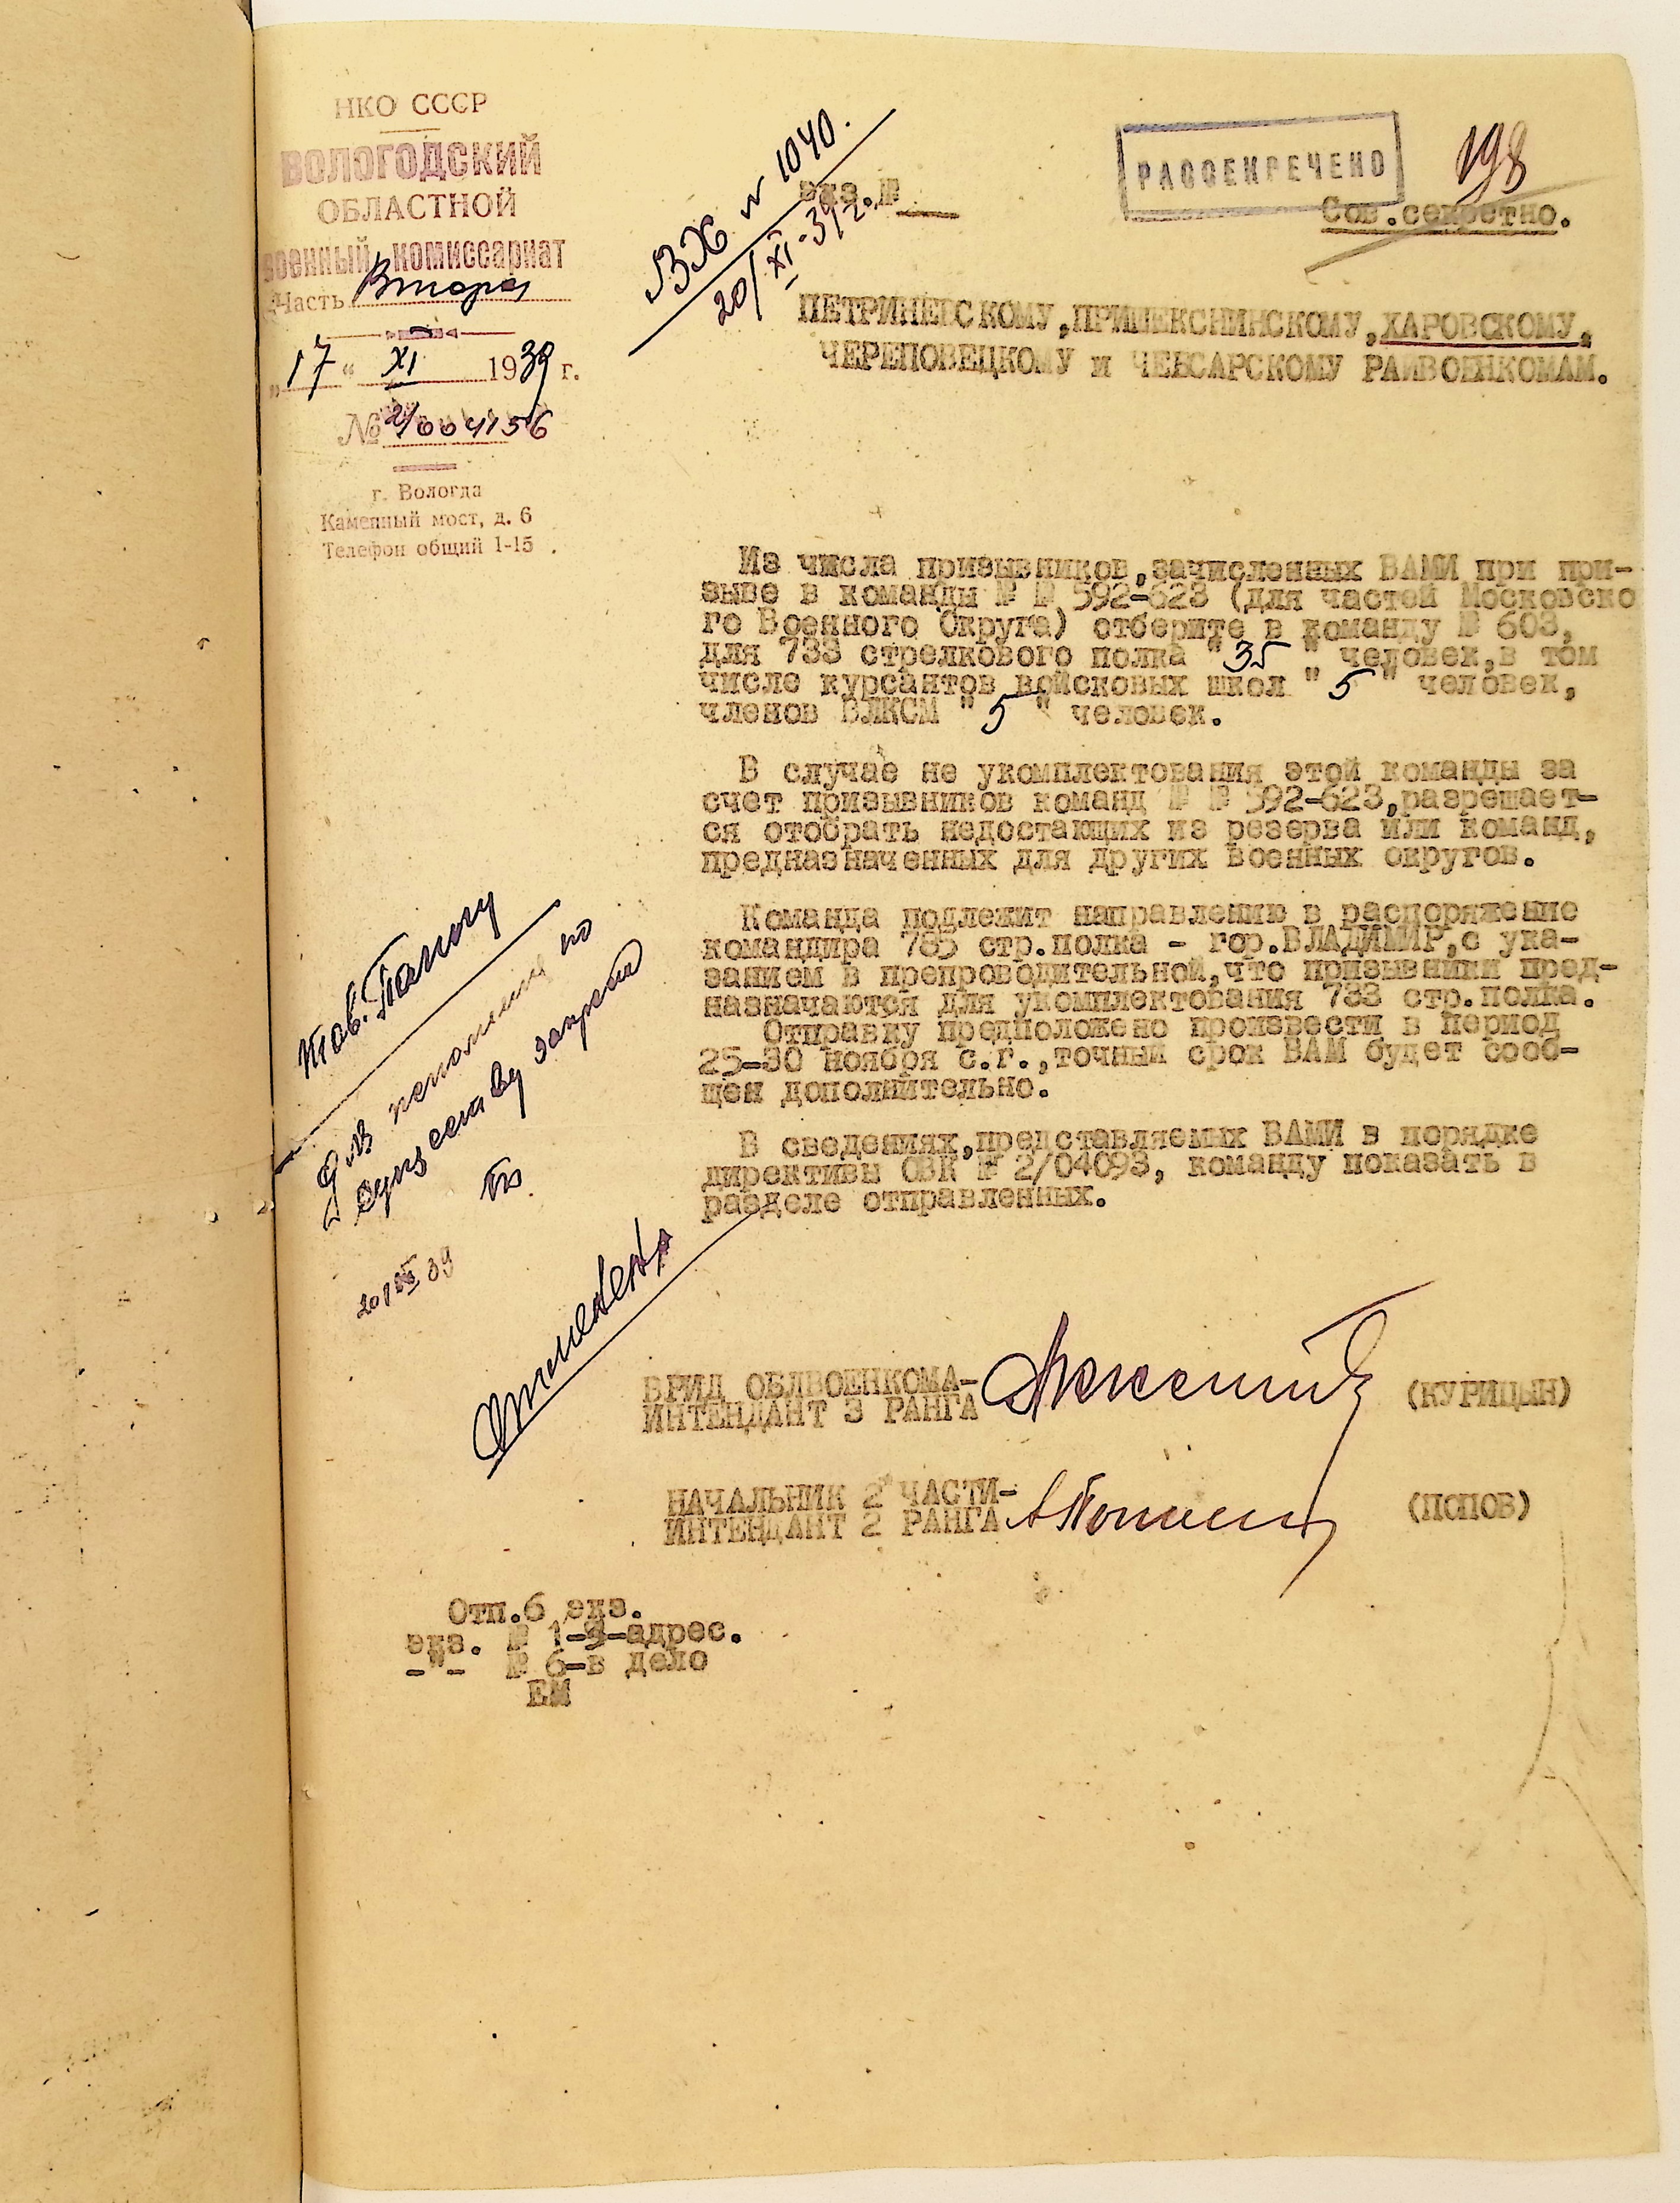 НКО СССР
ВОЛОГОДСКИЙ
ОБЛАСТНОЙ
военный комиссариат
Часть Вторая
„17“ XI 1939 г.
№ 2/004156
г. Вологда
Каменный мост, д. 6
Телефон общий 1-15
ВХ № 1040.
20/XI-39г.
экз.№
РАССЕКРЕЧЕНО
198
Сов.секретно.
ПЕТРИНЕВСКОМУ,ПРИШЕКСНИНСКОМУ,ХАРОВСКОМУ,
ЧЕРЕПОВЕЦКОМУ и ЧЕБСАРСКОМУ РАЙВОЕНКОМАМ.
Из числа призывников,зачисленных ВАМИ при при-
зыве в команды № № 592-623 (для частей Московско
го Военного Округа) отберите в команду № 603,
для 733 стрелкового полка "35" человек,в том
числе курсантов войсковых школ "5" человек,
членов ВЛКСМ "5" человек.
В случае не укомплектования этой команды за
счет призывников команд № № 592-623,разрешает-
ся отобрать недостающих из резерва или команд,
предназначенных для других военных округов.
Команда подлежит направлению в распоряжение
командира 785 стр.полка - гор.ВЛАДИМИР,с ука-
занием в препроводительной,что призывники пред-
назначаются для укомплектования 733 стр.полка.
Отправку предположено произвести в период
25-30 ноября с.г.,точный срок ВАМ будет сооб-
щен дополнительно.
В сведениях,представляемых ВАМИ в порядке
директивы ОВК № 2/04093, команду показать в
разделе отправленных.
тов.
Для исполнения по
существу
20/XI 39
ВРИД ОБЛВОЕНКОМА-
ИНТЕНДАНТ 3 РАНГА (КУРИЦЫН)
НАЧАЛЬНИК 2 ЧАСТИ-
ИНТЕНДАНТ 2 РАНГА (ПОПОВ)
Отп.6 экз.
экз. № 1-5-адрес.
-"- № 6-в дело
ЕМ